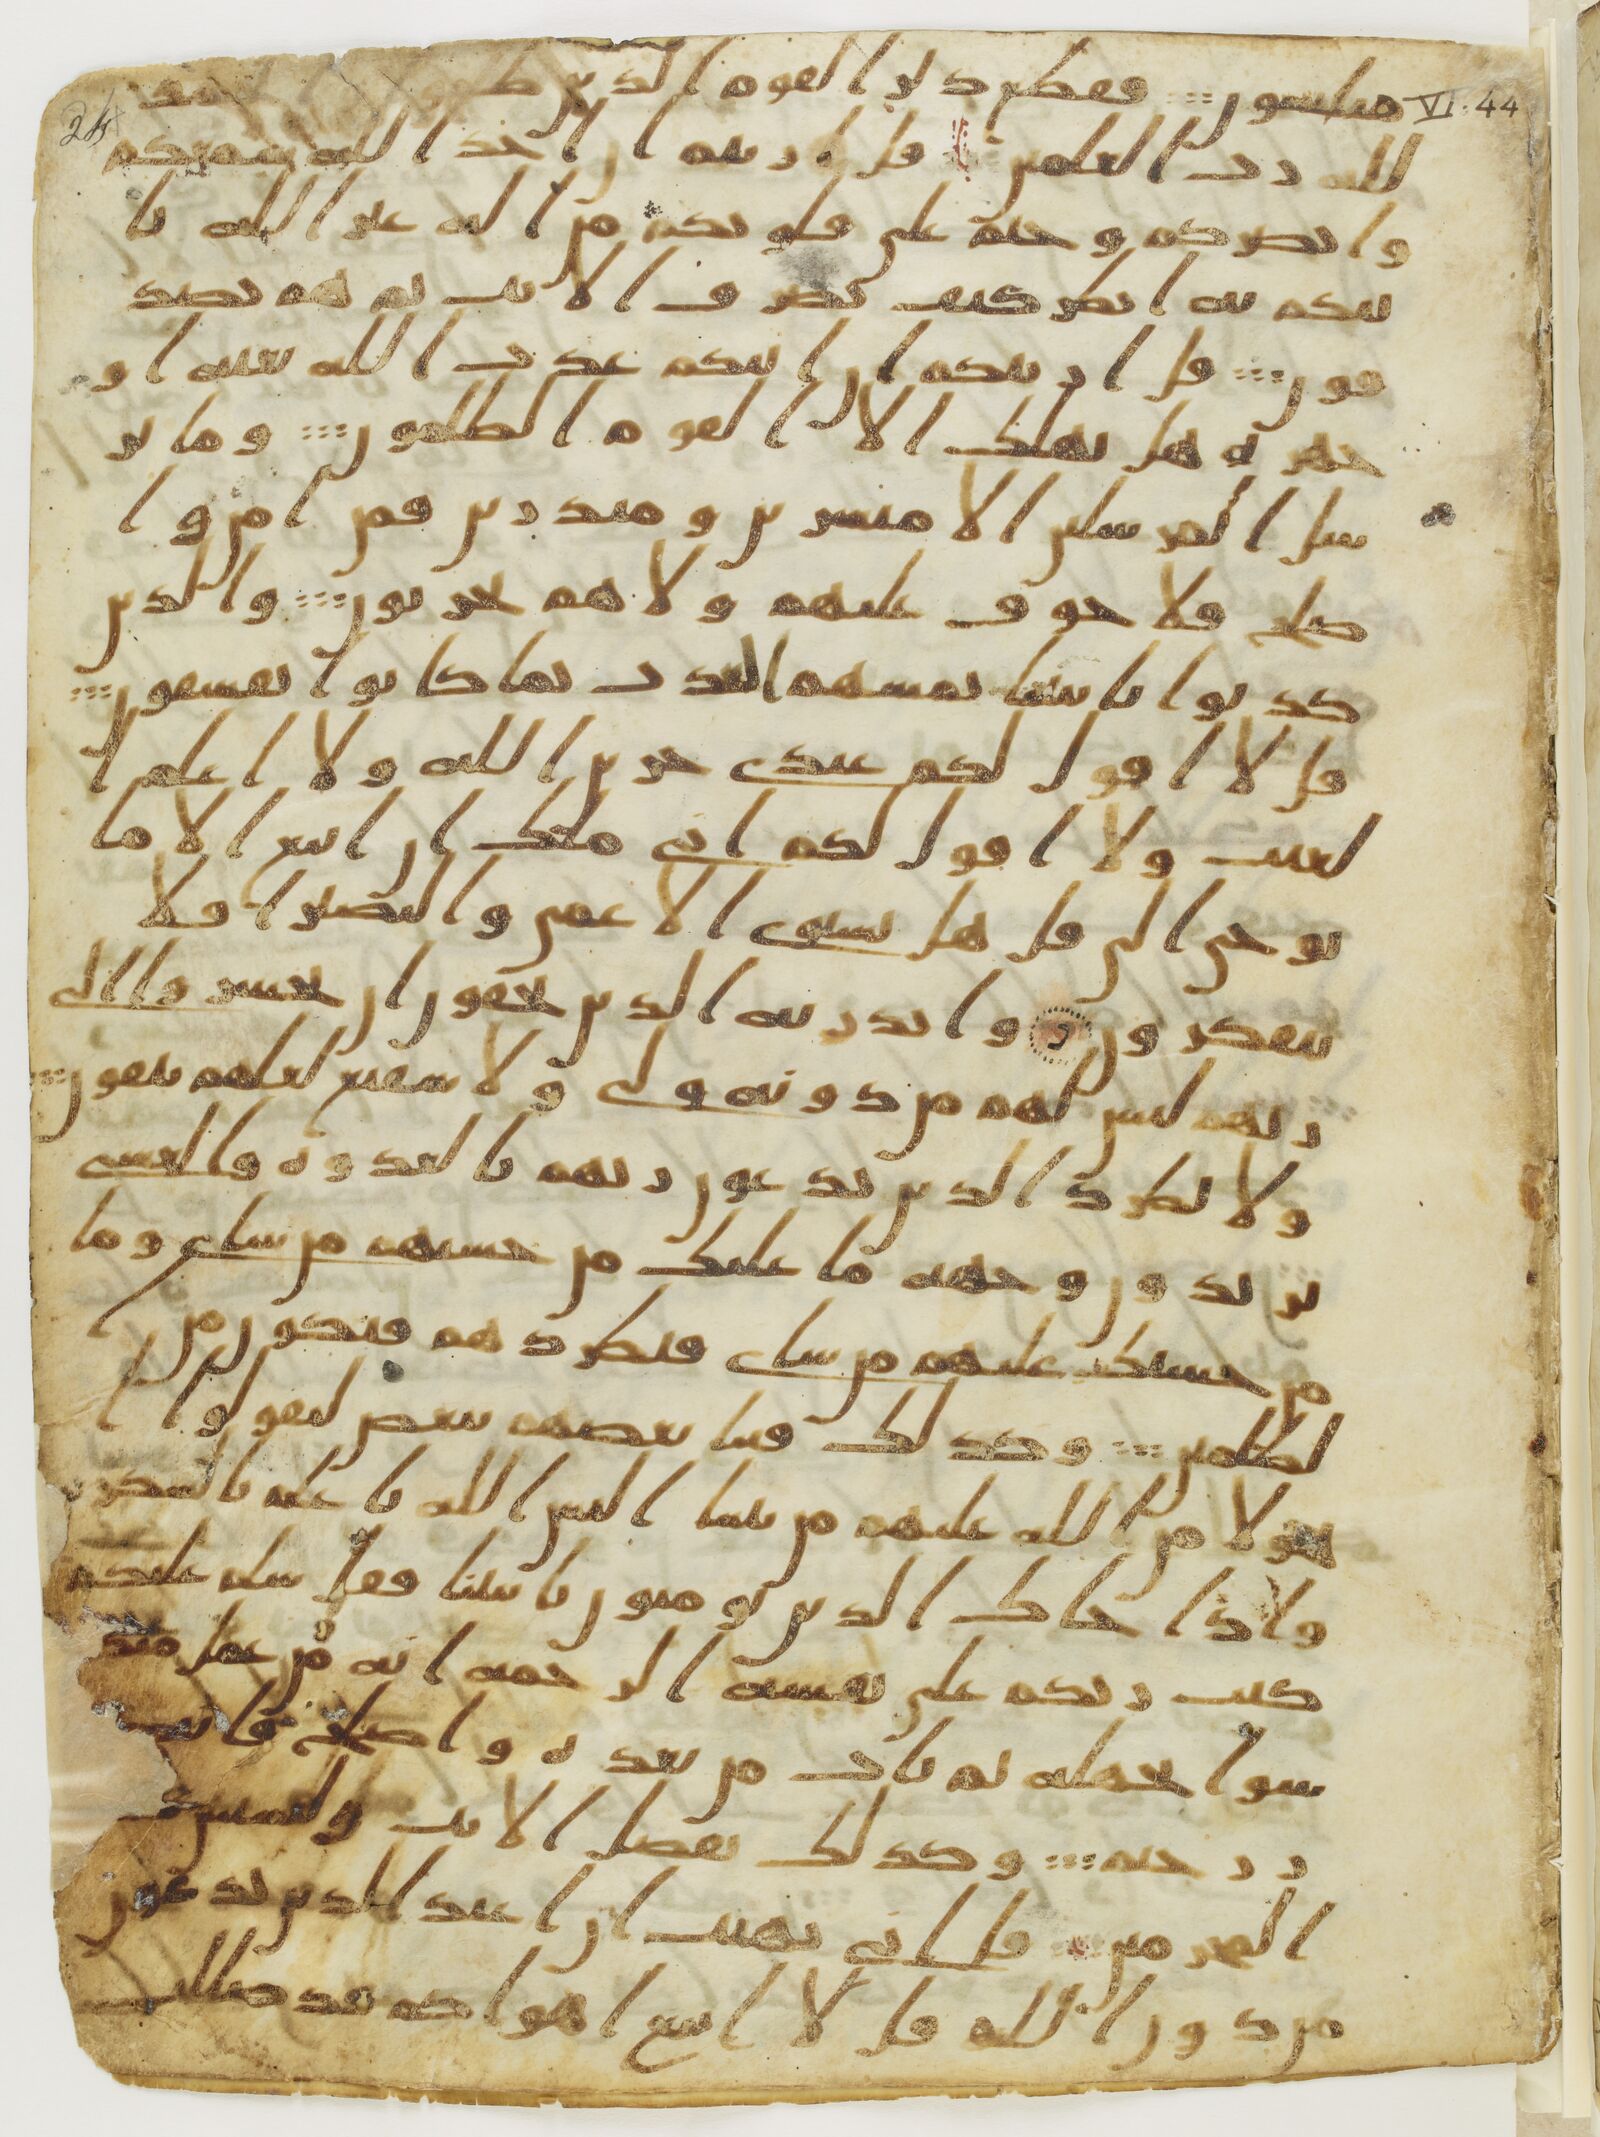 مبلسون فقطع دبر القوم الذين ظلموا والحمد
لله رب العلمين قل اريتم ان اخذ الله سمعكم
وابصركم وختم على قلوبكم من اله غير الله يا
تيكم به انظر كيف نصرف الايت ثم هم يصد
فون قل اريتكم ان اتيكم عذب الله بغته او
جهره هل يهلك الا القوم الظلمون وما نر
سل المرسلين الا مبشرين ومنذرين فمن امن وا
صلح فلا خوف عليهم ولا هم يحزنون والذين
كذبوا بايتنا يمسهم العذب بما كانوا يفسقون
قل لا اقول لكم عندي خزين الله ولا اعلم ا
لغيب ولا اقول لكم اني ملك ان اتبع الا ما
يوحى الى قل هل يستوي الاعمى والبصير افلا
تتفكرون وانذر به الذين يخفون ان يحشروا الى
ربهم ليس لهم من دونه ولي ولا شفيع لعلهم يتقون
ولا تطرد الذين يدعون ربهم بالغدوه والعشي
يريدون وجهه ما عليك من حسبهم من شاي وما
من حسبك عليهم من شاي فتطردهم فتكون من ا
لظلمين وكذلك فتنا بعضهم ببعض ليقولوا ا
هولا من الله عليهم من بيننا اليس الله باعلم بالشكرين
واذا جاك الذين يومنون بايتنا فقل سلم عليكم
كتب ربكم على نفسه الرحمه انه من عمل منكم
سوا بجهله ثم تاب من بعده واصلح فانه غفو
ر رحيم وكذلك نفصل الايت ولتستبين سبيل
المجرمين قل اني نهيت ان اعبد الذين تدعون
من دون الله قل لا اتبع اهواكم قد ضللت
VI. 44
24